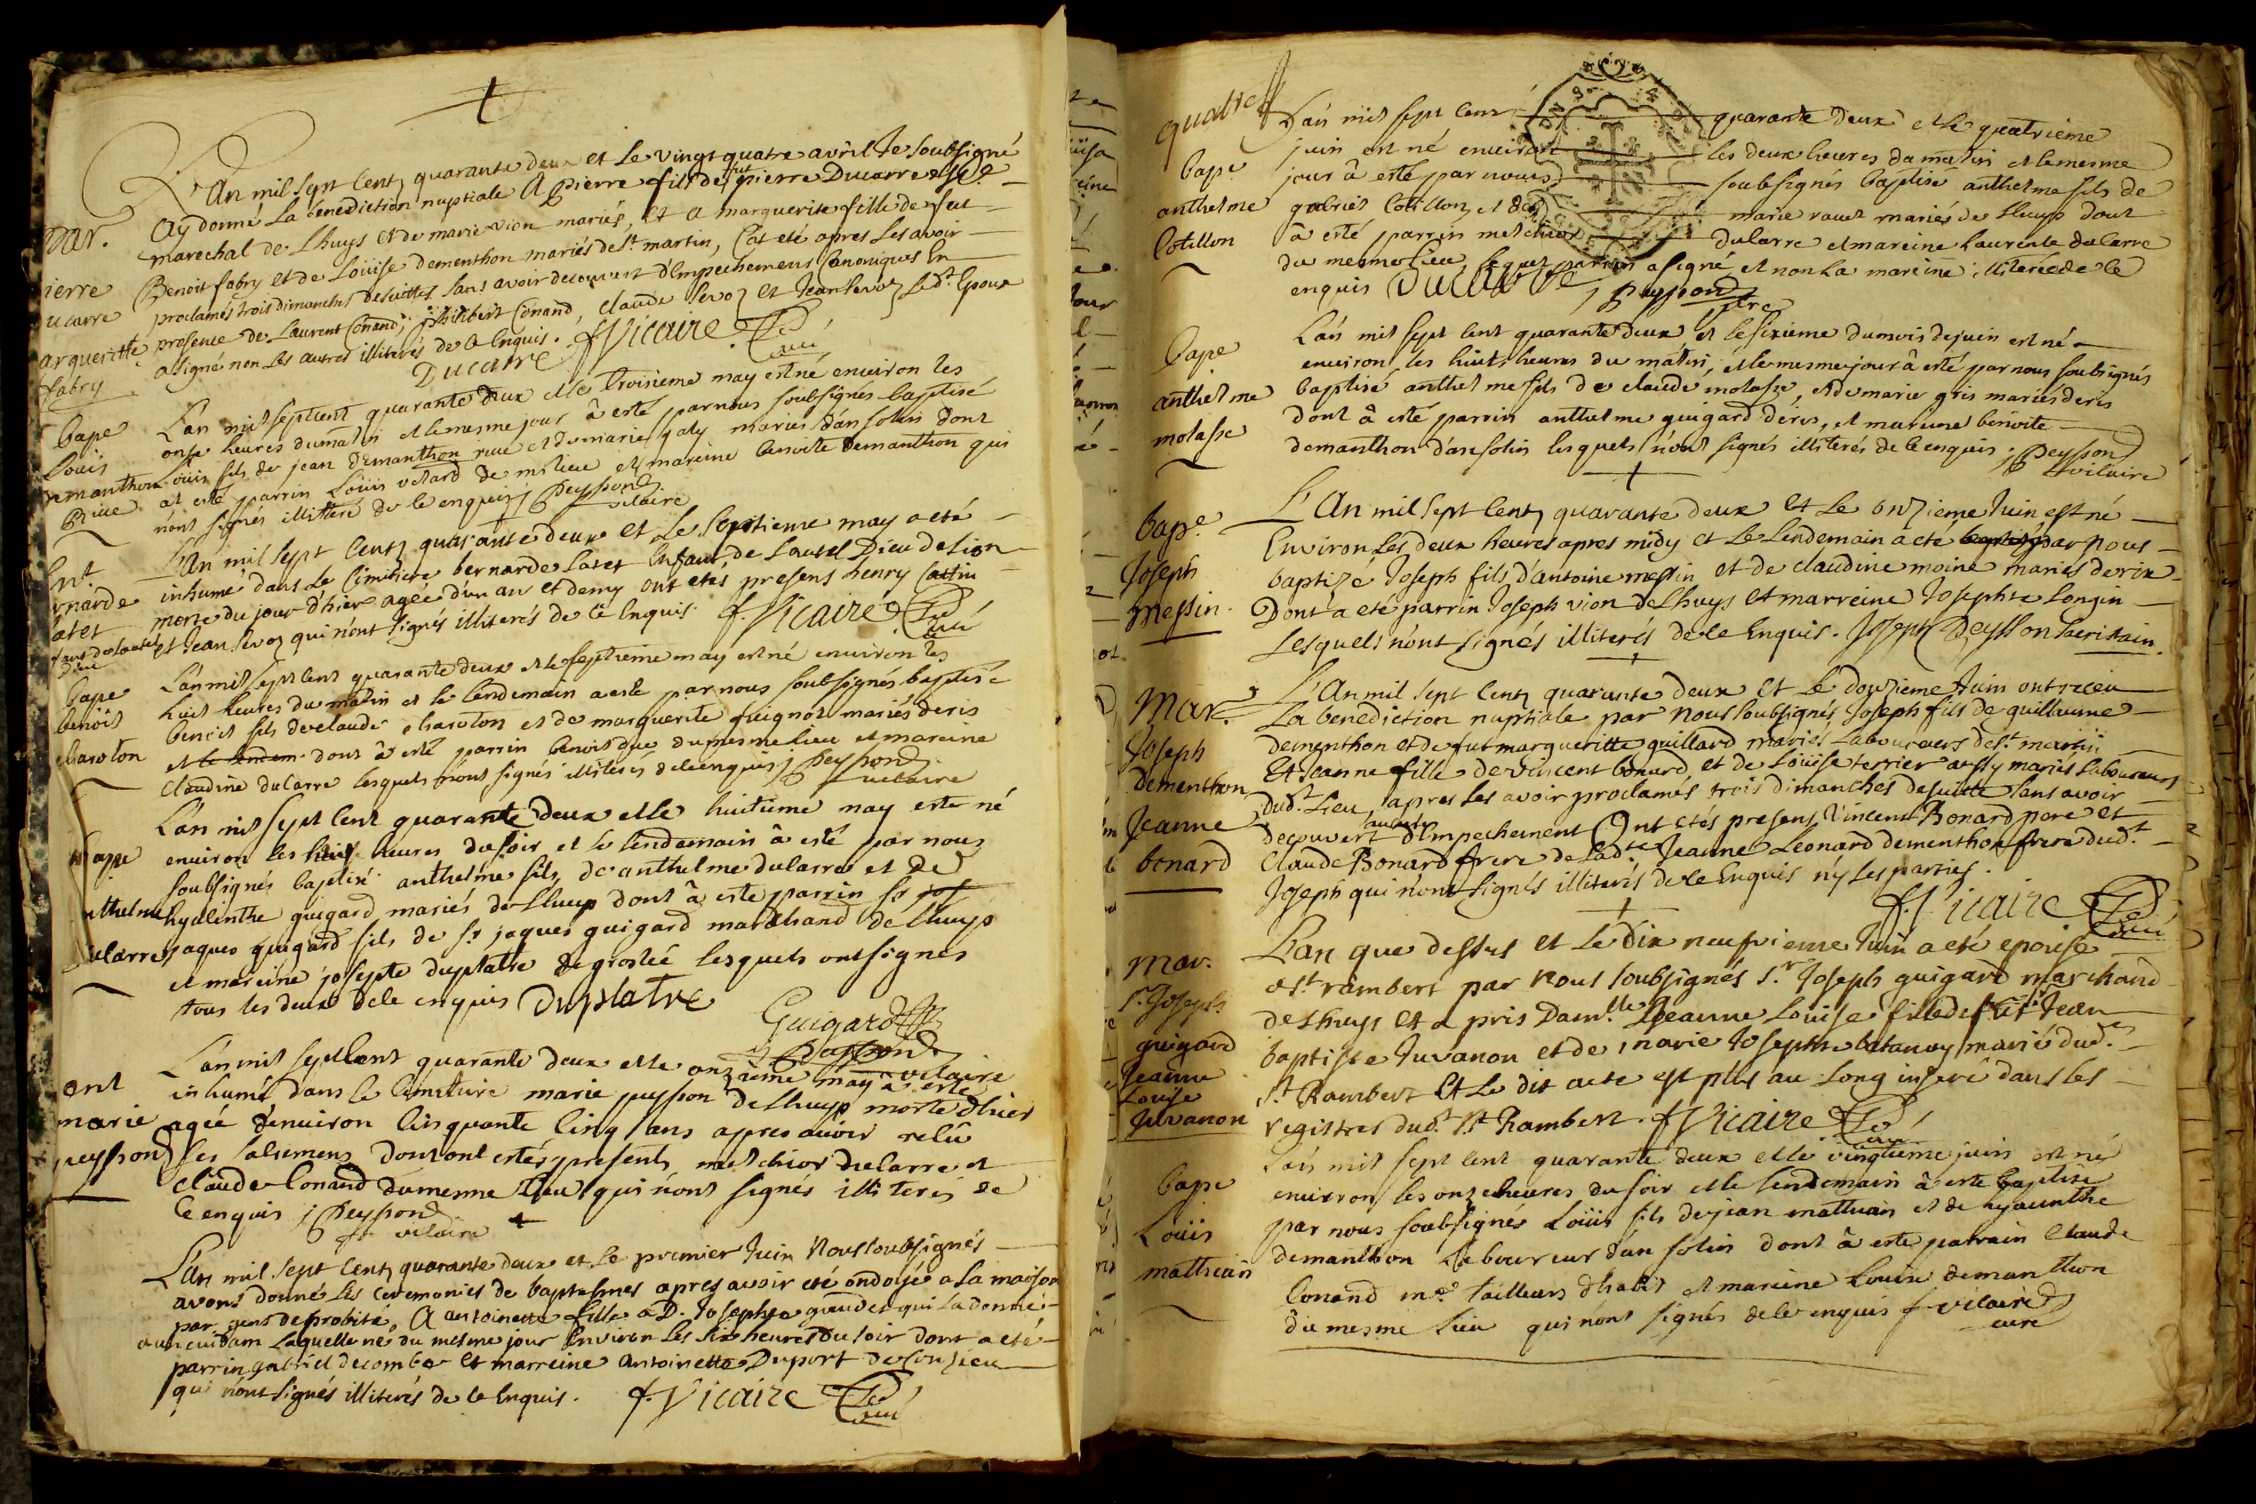 L'An mil sept centz quarante deux et le vingt quatre avril Je soubsigné
Ay donné la benediction nuptiale A pierre fils de fut pierre Ducarre
marechal de Lhuys et de marie vion mariés, et a marguerite fille de feu
Benoit fabry et de Loüise dementhon mariés de St martin, Cat eté apres les avoir
proclamés trois dimanches desuittes sans avoir decouvert d'Empechemens Canoniques En
presence de Laurent Conand, philibert Conand, claude Sevoz et Jean Sevoz Led.t Epoux
a signé non les autres illiterés de ce Enquis.
Ducarre f Vicaire Curé
Mar.
ierre
ucarre
arqueritte
fabry
L'an mil sept cent quarante deux et le troisieme may est né environ les
onse heures du matin et le mesme jour à esté par nous soubsignés baptisé
Louis fils de jean demanthon rive et de marie galy mariés d'ansolin dont
at esté parrin Loüis votard de milieu et mareine benoite demanthon qui
n'ont signés illitere de ce enquis j Peysson vicaire
Bape
Louis
demanthon
Rive
L'An mil sept Centz quarante deux et le septieme may a eté
inhumé dans Le Cimitiere bernarde Latet Enfant de Lautel Dieu de Lion
morte du jour d'hier agee d'un an et demy ont etés presens henry Cottin
et Jean Sevoz qui n'ont signés illiterés de ce Enquis. f. Vicaire Curé
Ent.
rnarde
atet
Dieu
L'an mil sept cent quarante deux et le septieme may est né environ les
huit heures du matin et le lendemain a esté par nous soubsignés baptisé
benoit fils de claude charoton et de marguerite guignot mariés de ris
et le lendem dont à esté parrin benoit du mesme lieu et mareine
claudine ducarre lesquels n'ont signés illiterés de ce enquis j Peysson vicaire
Bape
benoit
charoton
L'an mil sept cent quarante deux et le huitieme may este né
environ les huit heures du soir et le lendemain à esté par nous
soubsignés baptisé anthelme fils, de anthelme ducarre et de
hyacinthe guigard mariés de Lhuys dont à este parrin sr jos
jaques guigard fils de sr jaques guigard marchand de Lhuys
et mareine josepte duplatre de groslée lesquels ont signés
tous les deux de ce enquis Duplatre
Guigard
j Peysson vicaire
Bape
nthelme
ucarre
L'an mil sept cent quarante deux et le onzieme may à esté
inhumé dans le cimitiere marie peysson de Lhuys morte d'hier
agée d'environ cinquante cinq ans apres avoir relû
ses sacremens dont ont estés presents melchior ducarre et
claude Conand du mesme lieu qui n'ont signés illiterés de
ce enquis j Peysson vicaire
ent
marie
peysson
L'an mil sept Centz quarante deux et le premier Juin Nous soubsignés
avons donné les ceremonies de baptesmes apres avoir eté ondoyé a la maison
par gens de probité, A antoinette fille a D. Josephte qui la donné
a un cuidam Laquelle née du mesme jour Environ les six heures du soir dont a eté
parrin gabriel decombe et marreine antoinette Duport de Conzieu
qui n'ont signés illiterés de ce Enquis. f. Vicaire Curé
quatre
L'an mil sept cent quarante deux et le quatrieme
juin est né environ les deux heures du matin et le mesme
jour à esté par nous soubsignés baptisé anthelme fils de
gabriel Cotillon, et de marie ravet mariés de Lhuys dont
à esté parrin melchior ducarre et mareine Laurente ducarre
du mesme lieu, lequel parrin a signé et non la mareine illiterée de ce
enquis Ducarre j Peysson ptre
Bape
anthelme
Cotillon
L'an mil sept cent quarante deux et le sixieme du mois de juin est né
environ les huit heures du matin, et le mesme jour à esté par nous soubsignés
baptisé anthelme fils de claude molasse, et de marie gris mariés de ris
dont à esté parrin anthelme guigard de ris, et mareine benoite
demanthon d'ansolin lesquels n'ont signés illiterés de ce enquis j Peysson vicaire
Bape
anthelme
molasse
L'An mil sept Centz quarante deux et le onzieme Juin est né
Environ les deux heures apres midy et Le lendemain a eté baptisé par nous
baptizé Joseph fils d'antoine messin et de claudine moine mariés de rix
Dont a eté parrin Joseph vion de Lhuys et marreine Josephte Longin
Lesquels n'ont signés illiterés de ce Enquis. Joseph Peysson sacristain.
Bap.e
Joseph
messin.
L'An mil sept Centz quarante deux et Le douzieme Juin ont reçeu
La benediction nuptiale par nous soubsignés Joseph fils de guillaume
dementhon et de fut margueritte guillard mariés Laboureurs de St martin
Et Jeanne fille de vincent bonard et de Loüise terrier aussy mariés laboureurs
dud.t Lieu, apres les avoir proclamés trois dimanches desuitte sans avoir
decouvert aucun d'Empechement Ont etés presens Vincent Bonard pere et
Claude Bonard frere de Lad.te Jeanne Leonard dementhon frere dud.t
Joseph qui n'ont signés illiterés de ce Enquis n'y les parties.
f. Vicaire Curé
Mar.
Joseph
dementhon
Jeanne
bonard
L'an que dessus et Le dix neufvieme Juin a eté epousé
a St rambert par nous soubsignés S.r Joseph guigard marchand
de Lhuys et a pris Dam.lle Jeanne Louise fille de fut Sr Jean
baptiste Juvanon et de marie Josephte betanay mariés dud.t
St Rambert Et Le dit acte est plus au Long inseré dans les
registres dud.t St Rambert. f Vicaire Curé
Mar.
S.r Joseph
guigard
Jeanne
Louise
Juvanon
L'an mil sept cent quarante deux et le vingtieme juin est né
environ les onze heures du soir et le lendemain à esté baptisé
par nous soubsignés Loüis fils de jean mathian et de hyacinthe
demanthon Laboureur d'ansolin dont à esté parrain Claude
Conand m.e tailleurs d'habit et mareine Louise demanthon
du mesme lieu qui n'ont signés de ce enquis f vicaire curé
Bape
Louis
mathian